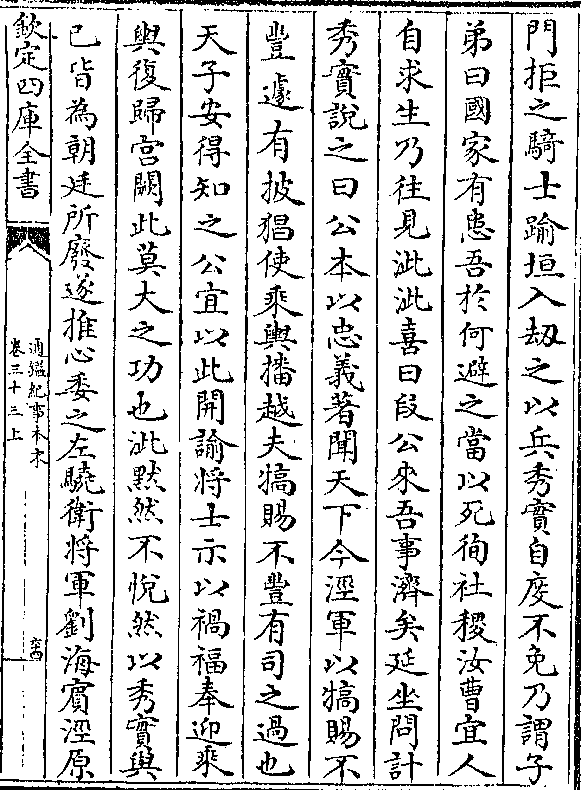 門拒之騎士踰垣入劫之以兵秀實自度不免乃謂子
弟曰國家有患吾於何避之當以死徇社稷汝曹宜人
自求生乃往見泚泚喜曰段公來吾事濟矣延坐問計
秀實說之曰公本以忠義著聞天下今涇軍以犒賜不
豐遽有披猖使乘輿播越夫犒賜不豐有司之過也
天子安得知之公宜以此開諭將士示以禍福奉迎乘
輿復歸宫闕此莫大之功也泚默然不悅然以秀實與
已皆為朝廷所廢遂推心委之左驍衛將軍劉海賓涇原
欽定四庫全書
通鑑紀事本末
卷三十三上
六四